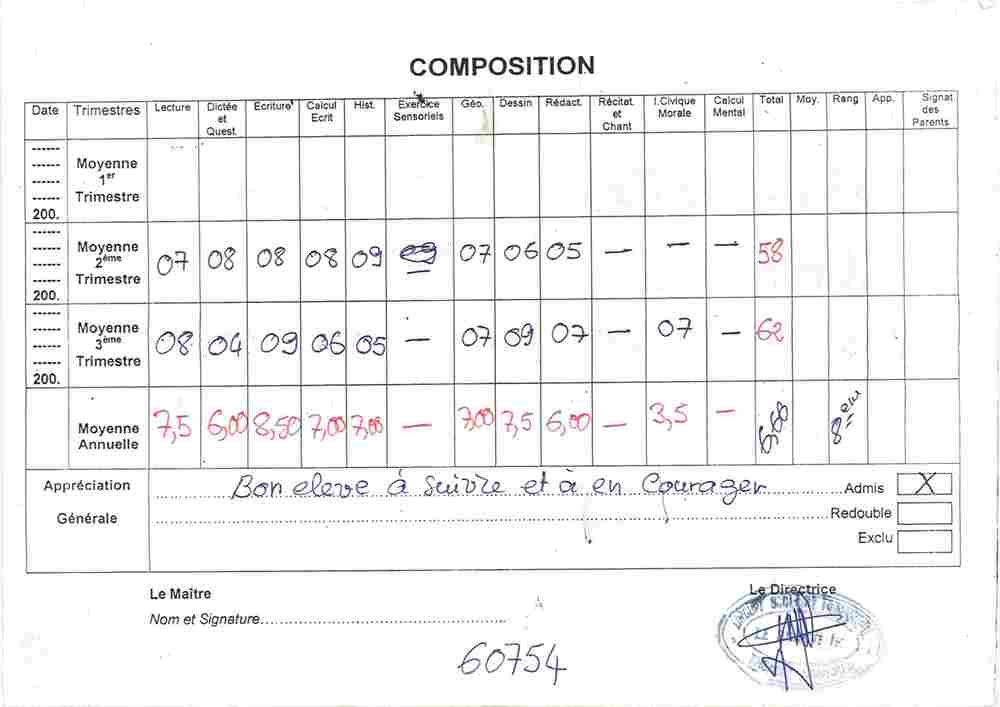 COMPOSITION
Date Trimestres Lecture Dictée et Quest. Ecriture Calcul Ecrit Hist. Exercice Sensoriels Géo. Dessin Rédact. Récitat. et Chant I.Civique Morale Calcul Mental Total Moy. Rang App. Signat des Parents
------
------ Moyenne
------ 1er
------ Trimestre
200.
------
------ Moyenne
------ 2ème
------ Trimestre
200.
07 08 08 08 09 07 06 05 — — — 58
------
------ Moyenne
------ 3ème
------ Trimestre
200.
08 04 09 06 05 — 07 09 07 — 07 — 62
Moyenne Annuelle 7,5 6,00 8,50 7,00 7,00 — 7,00 7,5 6,00 — 3,5 — 6,68 8eme
Appréciation Bon eleve à suivre et à en Courager Admis X
Générale Redouble
Exclu
Le Maître Le Directrice
Nom et Signature
60754